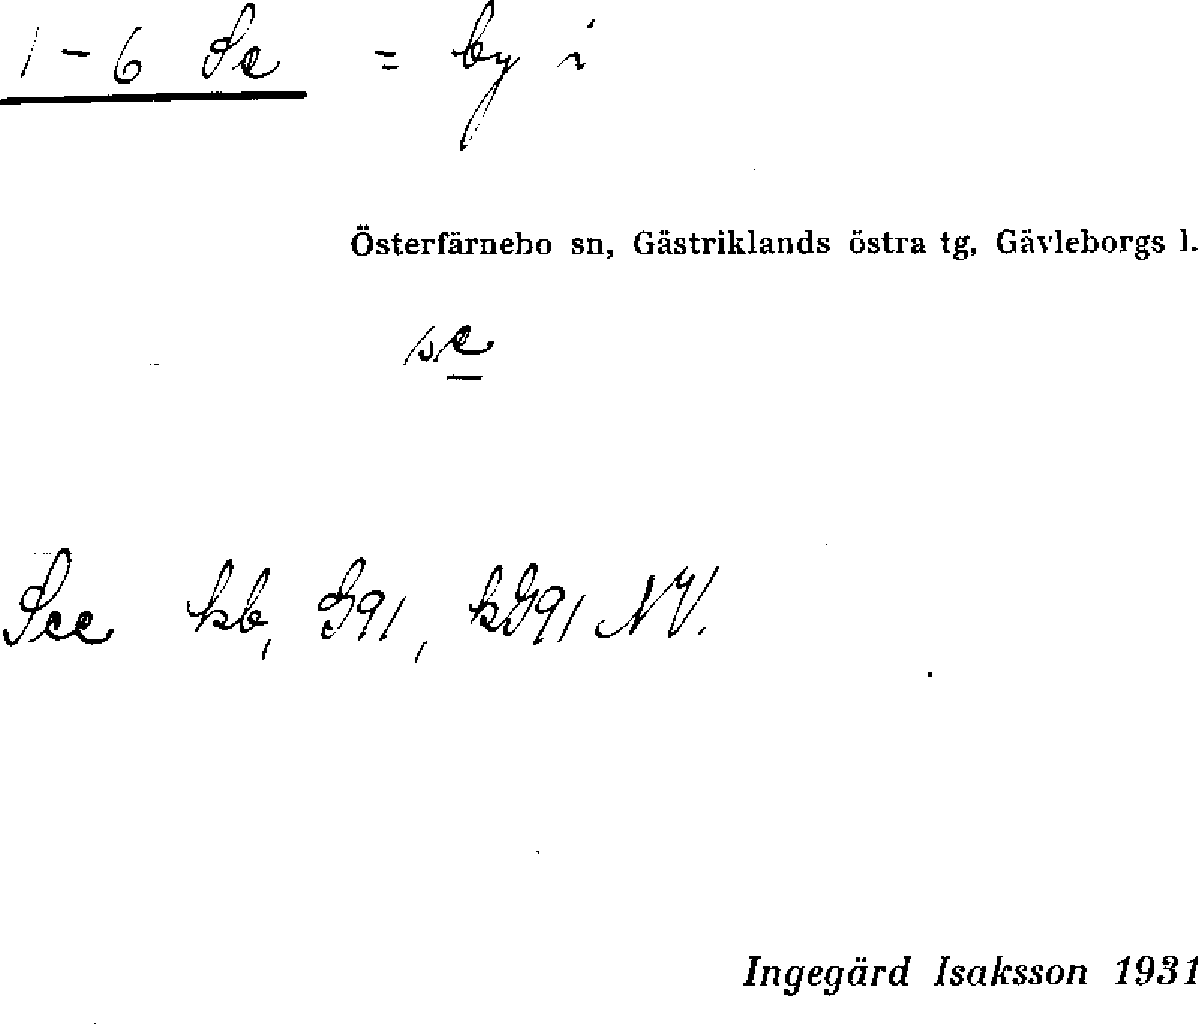 1-6 Se = by i
Österfärnebo sn, Gästriklands östra tg, Gävleborgs l.
se
See kb, G91, kG91 NV.
Ingegärd Isaksson 1931